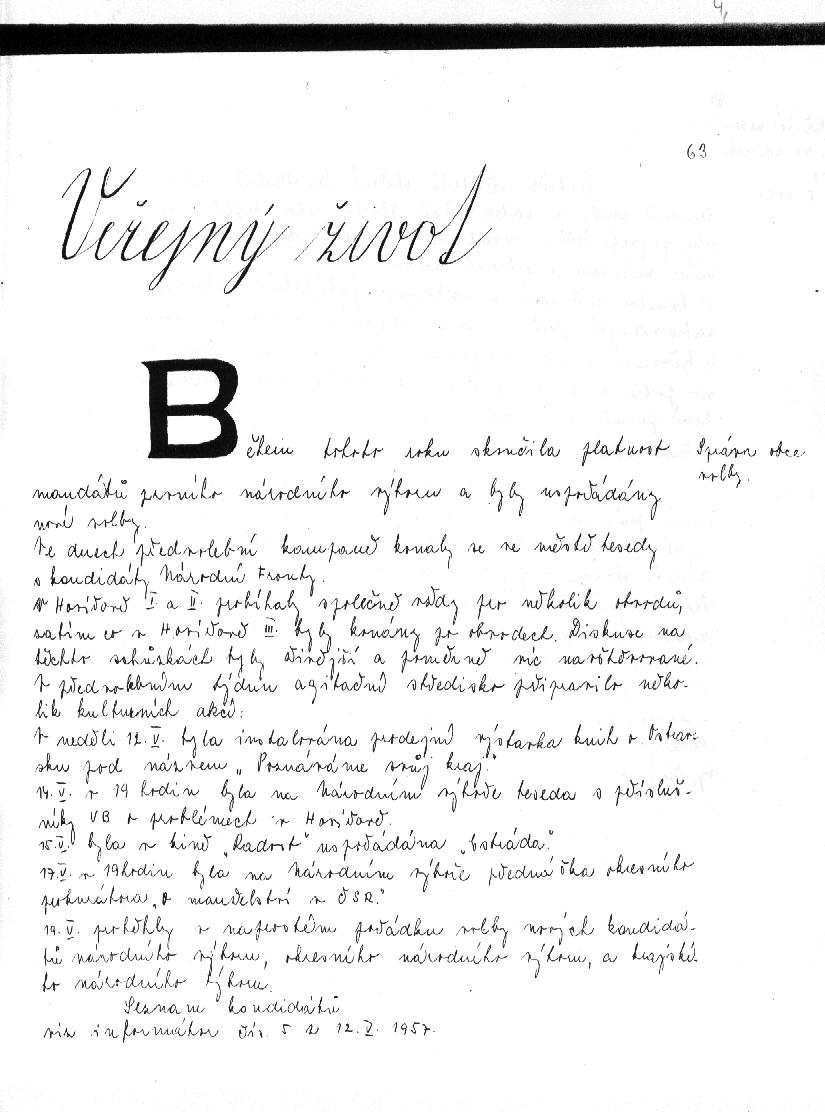 4,
63
Veřejný život
Během tohoto roku skončila platnost
Správa obce
volby.
mandátů prvního národního výboru a byly uspořádány
nové volby.
Ve dnech předvolební kampaně konaly se ve městě besedy
s kandidáty Národní Fronty.
V Hořovicích I. a II. probíhaly společně vždy pro několik obvodů,
zatím co v III. byly konány po obvodech. Diskuse na
těchto schůzkách byly živější a poměrně víc navštěvované.
V předvolebním týdnu agitační středisko připravilo něko-
lik kulturních akcí:
V neděli 12.V. byla instalována prodejní výstavka knih o Ostrav-
sku pod názvem „Poznáváme svůj kraj."
14.V. v 19 hodin byla na Národním výboře beseda s přísluš-
níky VB o problémech v
15.V. byla v kině „Radost" uspořádána „Estráda."
17.V. v 19 hodin byla na Národním výboře přednáška okresního
prokurátora „o manželství v ČSR."
19.V. proběhly v naprostém pořádku volby nových kandidá-
tů národního výboru, okresního národního výboru, a krajské-
ho národního výboru.
Seznam kandidátů
viz informátor čís. 5 z 12.V. 1957.